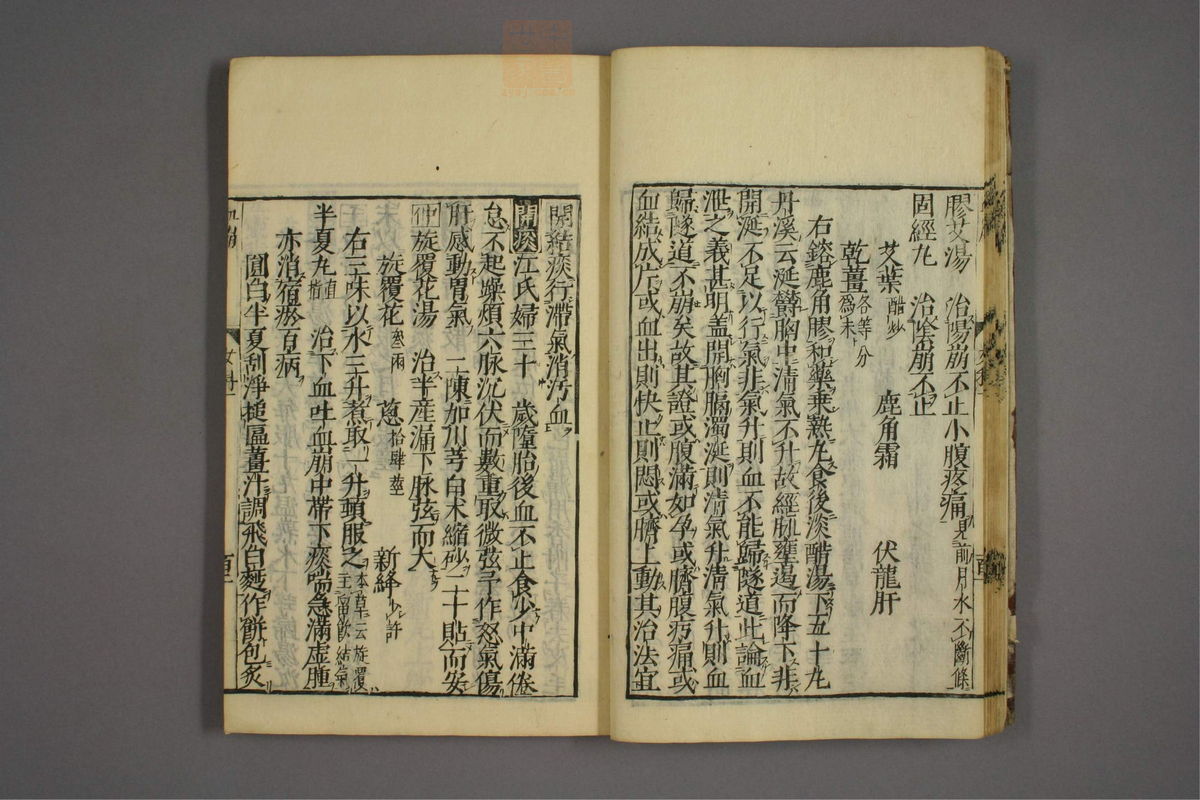 膠艾湯　治陽崩不止小腹疼痛見前月水不斷條
固經丸　治陰崩不止
艾葉醋炒　鹿角霜　伏龍肝
乾薑各等分爲末
右鎔鹿角膠和藥乗熱丸食後淡醋湯下五十丸
丹溪云涎欝胸中清氣不升故經脉壅遏而降下非
開涎不足以行氣非氣升則血不能歸隧道此論血
泄之義甚明盖開胸膈濁涎則清氣升清氣升則血
歸隧道不崩矣故其證或腹滿如孕或臍腹㽲痛或
血結成片或血出則快止則悶或臍上動其治法宜
開結痰行滯氣消汚血
開痰江氏婦三十歲墮胎後血不止食少中滿倦
怠不起躁煩六脉沉伏而數重取微弦予作怒氣傷
肝感動胃氣二陳加川芎白朮縮砂二十貼而安
仲旋覆花湯　治半産漏下脉弦而大
旋覆花叁兩　葱拾肆莖　新絳少許
右三味以水三升煮取一升頭服之本草云旋覆主畱飲結氣
半夏丸直指　治下血吐血崩中帶下痰喘急滿虚腫
亦消宿瘀百病
圓白半夏刮淨搥匾薑汁調飛白麪作餅包炙